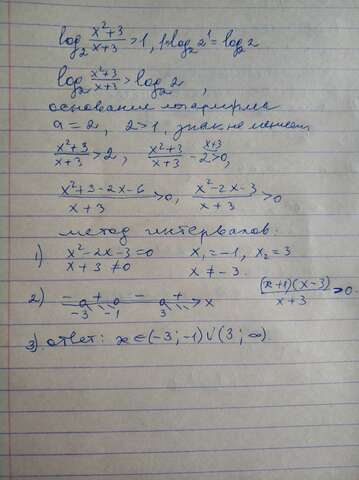 log₂ (x²+3)/(x+3) > 1, 1·log₂ 2¹ = log₂ 2
log₂ (x²+3)/(x+3) > log₂ 2,
основание логарифма
a = 2, 2 > 1, знак не меняем
(x²+3)/(x+3) > 2, (x²+3)/(x+3) - 2^(x+3) > 0,
(x²+3-2x-6)/(x+3) > 0, (x²-2x-3)/(x+3) > 0
метод интервалов:
1) x²-2x-3=0 x₁=-1, x₂=3
x+3 ≠ 0 x ≠ -3.
2) - + - + x ((x+1)(x-3))/(x+3) > 0
-3 -1 3
3) ответ: x ∈ (-3; -1) ∪ (3; ∞).